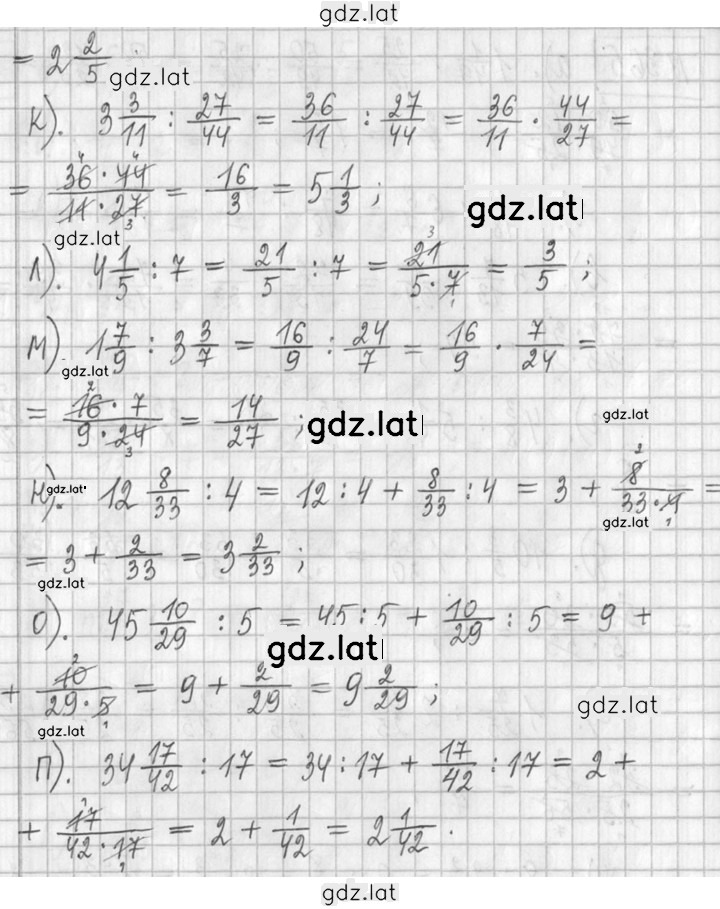 gdz.lat
= 2 2/5
gdz.lat
к). 3 3/11 : 27/44 = 36/11 : 27/44 = 36/11 · 44/27 =
= 36 4 · 44 4 / 11 · 27 3 = 16/3 = 5 1/3 ; gdz.lat
gdz.lat
л). 4 1/5 : 7 = 21/5 : 7 = 21 3 / 5 · 7 1 = 3/5 ;
м). 1 7/9 : 3 3/7 = 16/9 : 24/7 = 16/9 · 7/24 =
gdz.lat
= 16 2 · 7 / 9 · 24 3 = 14/27 ; gdz.lat gdz.lat
н). gdz.lat 12 8/33 : 4 = 12 : 4 + 8/33 : 4 = 3 + 8 2 / 33 · 4 1 =
gdz.lat
= 3 + 2/33 = 3 2/33 ;
gdz.lat
о). 45 10/29 : 5 = 45 : 5 + 10/29 : 5 = 9 +
gdz.lat
+ 10 2 / 29 · 5 1 = 9 + 2/29 = 9 2/29 ; gdz.lat
gdz.lat
п). 34 17/42 : 17 = 34 : 17 + 17/42 : 17 = 2 +
+ 17 1 / 42 · 17 1 = 2 + 1/42 = 2 1/42 .
gdz.lat